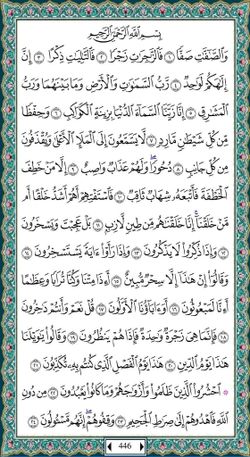 بِسْمِ اللَّهِ الرَّحْمَٰنِ الرَّحِيمِ
وَالصَّافَّاتِ صَفًّا ١ فَالزَّاجِرَاتِ زَجْرًا ٢ فَالتَّالِيَاتِ ذِكْرًا ٣ إِنَّ
إِلَٰهَكُمْ لَوَاحِدٌ ٤ رَّبُّ السَّمَاوَاتِ وَالْأَرْضِ وَمَا بَيْنَهُمَا وَرَبُّ
الْمَشَارِقِ ٥ إِنَّا زَيَّنَّا السَّمَاءَ الدُّنْيَا بِزِينَةٍ الْكَوَاكِبِ ٦ وَحِفْظًا
مِّن كُلِّ شَيْطَانٍ مَّارِدٍ ٧ لَّا يَسَّمَّعُونَ إِلَى الْمَلَإِ الْأَعْلَىٰ وَيُقْذَفُونَ
مِن كُلِّ جَانِبٍ ٨ دُحُورًا ۖ وَلَهُمْ عَذَابٌ وَاصِبٌ ٩ إِلَّا مَنْ خَطِفَ
الْخَطْفَةَ فَأَتْبَعَهُ شِهَابٌ ثَاقِبٌ ١٠ فَاسْتَفْتِهِمْ أَهُمْ أَشَدُّ خَلْقًا أَم
مَّنْ خَلَقْنَا ۚ إِنَّا خَلَقْنَاهُم مِّن طِينٍ لَّازِبٍ ١١ بَلْ عَجِبْتَ وَيَسْخَرُونَ
١٢ وَإِذَا ذُكِّرُوا لَا يَذْكُرُونَ ١٣ وَإِذَا رَأَوْا آيَةً يَسْتَسْخِرُونَ
١٤ وَقَالُوا إِنْ هَٰذَا إِلَّا سِحْرٌ مُّبِينٌ ١٥ أَإِذَا مِتْنَا وَكُنَّا تُرَابًا وَعِظَامًا
أَإِنَّا لَمَبْعُوثُونَ ١٦ أَوَآبَاؤُنَا الْأَوَّلُونَ ١٧ قُلْ نَعَمْ وَأَنتُمْ دَاخِرُونَ
١٨ فَإِنَّمَا هِيَ زَجْرَةٌ وَاحِدَةٌ فَإِذَا هُمْ يَنظُرُونَ ١٩ وَقَالُوا يَا وَيْلَنَا
هَٰذَا يَوْمُ الدِّينِ ٢٠ هَٰذَا يَوْمُ الْفَصْلِ الَّذِي كُنتُم بِهِ تُكَذِّبُونَ ٢١
۞ احْشُرُوا الَّذِينَ ظَلَمُوا وَأَزْوَاجَهُمْ وَمَا كَانُوا يَعْبُدُونَ ٢٢ مِن دُونِ
اللَّهِ فَاهْدُوهُمْ إِلَىٰ صِرَاطِ الْجَحِيمِ ٢٣ وَقِفُوهُمْ ۖ إِنَّهُم مَّسْئُولُونَ ٢٤
446